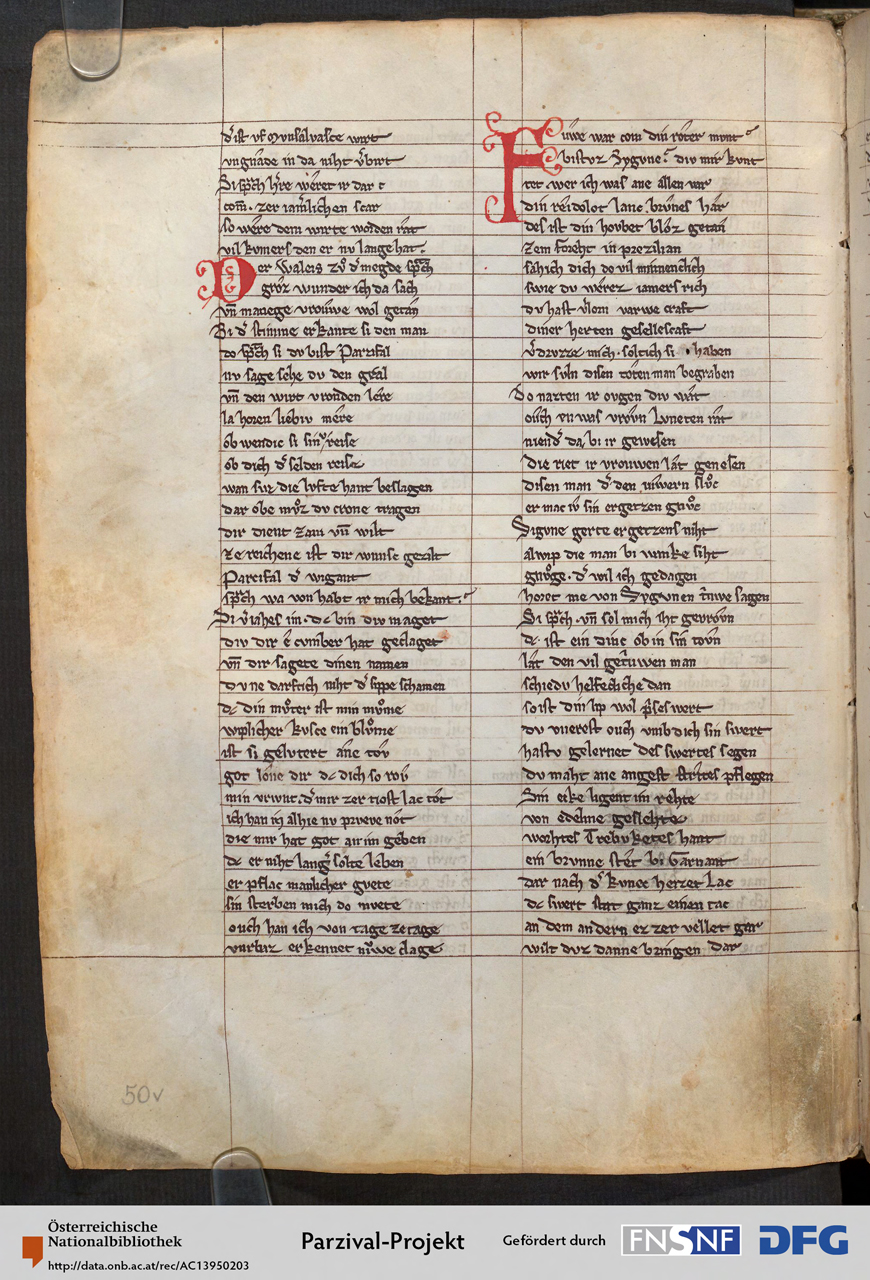 d̕ ist vf Mvnsalvasce wirt
vngnade in da niht v̕birt
Si sp̄ch h̕re weret ir dar c
com. zer iam̕lichen scar
so were dem wirte worden rat
vil kvmers den er nv lange hat.
Der Waleis zv̊ d̕ megde sp̄ch
groz wunder ich da sach
vn̄ manege vrouwe wol getan
Bi d̕ stimme erkante si den man
do sp̄ch si dv bist Parcifal
nv sage sehe dv den gral
vn̄ den wirt vrouden lere
la horen liebiv mere
ob wendic si sin reise
ob dich d̕ selden reise
wan fur die lvfte hant beslagen
dar obe mv̊z dv crone tragen
dir dient zam vn̄ wilt
ze richene ist dir wunsc gezilt
Parcifal d̕ wigant
sp̄ch wa von habt ir mich bekant.
Si v̕iahes im. dc bin div maget
div dir e cumber hat geclaget
vn̄ dir sagete dinen namen
dvne darftich niht d̕ sippe schamen
dc din mv̊ter ist min mv̊me
wiplicher kvsce ein blv̊me
ist si gelutert ane tov
got lone dir dc dich so rov
min vrivnt. d̕ mir zer tiost lac tot
ich han in alhie nv prveve not
die mir hat got an im geben
dc er niht lang̕ solte leben
er pflac manlicher gvete
sin sterben mich do mvete
ouch han ich von tage ze tage
vurbaz erkennet nv̊we clage
Fuwe war com din roter mvnt
bistuz Sygvne. div mir kvnt
tet. wer ich was ane allen var
din reidolot lanc brvnes har
des ist din houbet bloz getan
zem foreht in prezilian
sahich dich do vil minnenclich
swie dv werez iamers rich
dv hast v̕lorn varwe craft
diner herten gesellescaft
v̕drvzze mich. soltich si haben
wir svln disen toten man begraben
Do nazten ir ovgen div wat
ouch vn was vrovn Lvneten rat
niend̕ da bi ir gewesen
die riet ir vrouwen lat genesen
disen man d̕ den iuwern slv̊c
er mac iv sin ergetzen gnv̊c
Sigvne gerte ergetzens niht
alwip die man bi wnke siht
gnv̊ge. d̕ wil ich gedagen
horet me von Sygvnen triwe sagen
Si sp̄ch. vn̄ sol mich iht gevrovn
dc. ist ein dinc ob in sin tovn
lat den vil getruwen man
schiedv helfecliche dan
so ist din lip wol prises wert
dv vuerest ouch vmb dich sin swert
hastv gelernet des swertes segen
dv maht ane angest strites pflegen
Sin ecke ligent im rehte
von edelme geslehte
worhtes Trebvketes hant
ein brvnne stet bi Garnant
dar nach d̕ kvnec heizet Lac
dc swert stat ganz einen tac
an dem andern ez zer vellet gar
wilt dvz danne bringen dar
50v
Österreichische
Nationalbibliothek
http://data.onb.ac.at/rec/AC13950203
Parzival-Projekt
Gefördert durch
FNSNF
DFG